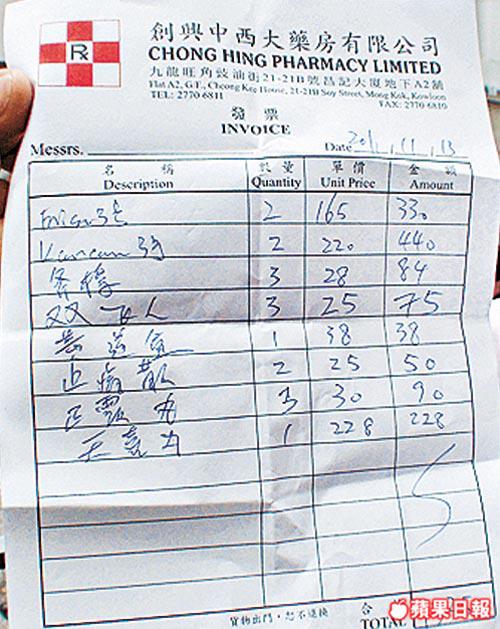 Rx
創興中西大藥房有限公司
CHONG HING PHARMACY LIMITED
九龍旺角豉油街21-21B號昌記大廈地下A2舖
Flat A2, G/F., Cheong Kee House, 21-21B Soy Street, Mong Kok, Kowloon
TEL: 2770 6811 FAX: 2770 6810
發票
INVOICE
Messrs. Date 2011, 11, 13
名稱 數量 單價 金額
Description Quantity Unit Price Amount
2 165 330
2 220 440
3 28 84
3 25 75
1 38 38
止痛散 2 25 50
3 30 90
1 228 228
貨物出門‧恕不退換
TOTAL
蘋果日報